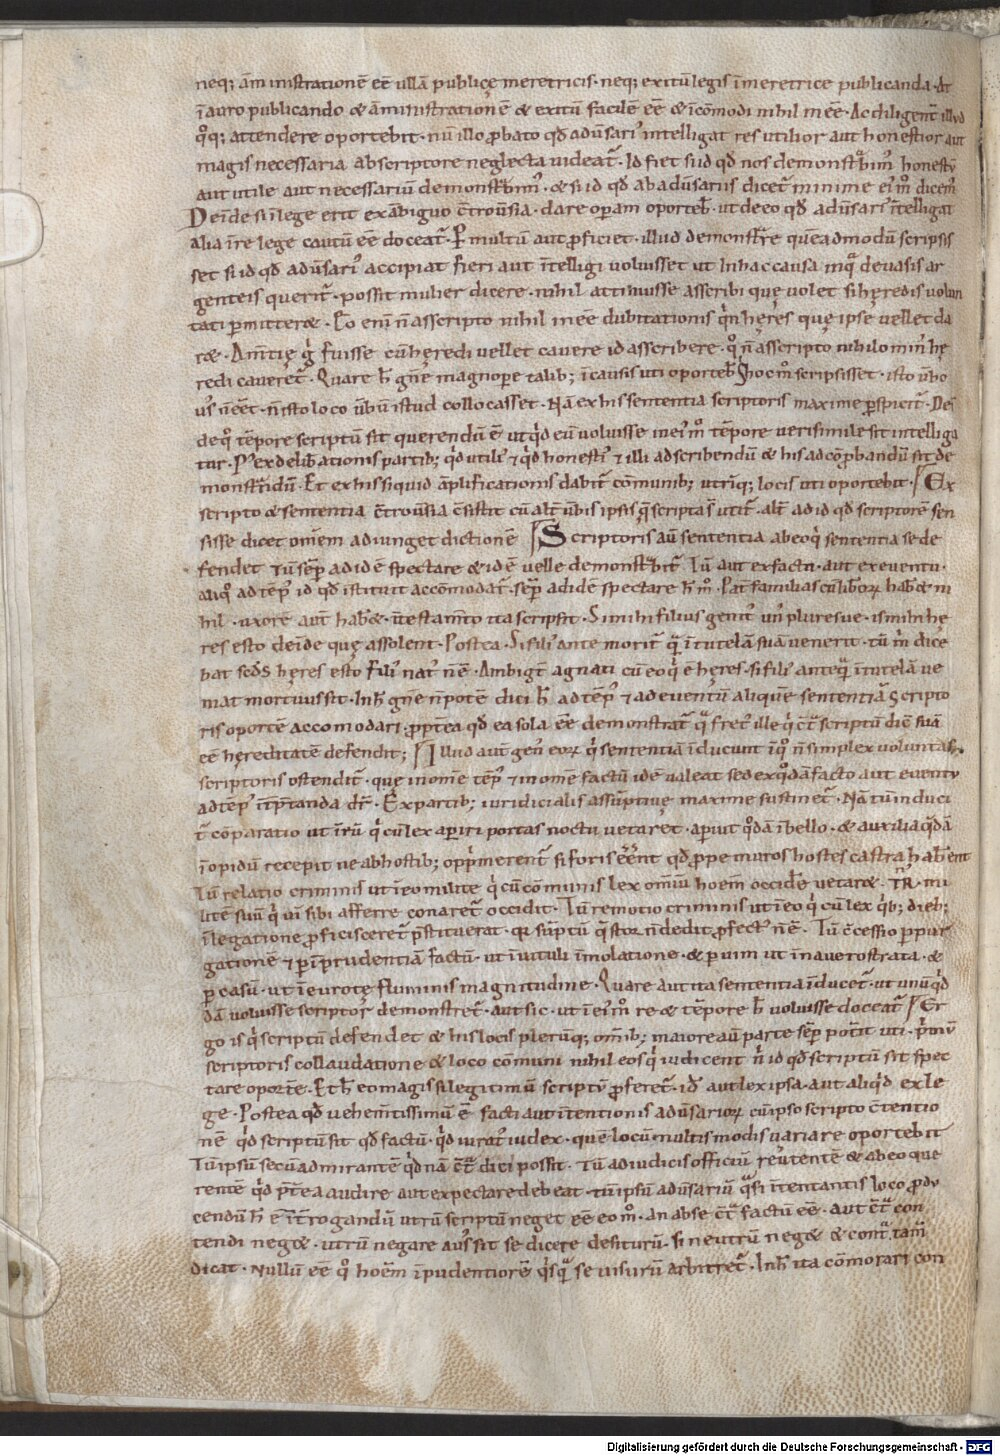 neq; ām inistrationē eē ullā publicę meretricis · neq; exitū legis ī meretrice publicanda · at
ī auro publicando & āministrationē & exitū facilē eē & īcōmodi nihil inēē · Ac diligent̄ illud
q̊q; attendere oportebit · nū illo ꝓbato qd̄ adūsari᾽ intelligat res utilior aut honestior aut
magis necessaria ab scriptore neglecta uideat᷑ · Id fiet si id qd̄ nos demonstᵃbim᾽ honestū
aut utile aut necessariū demonstᵃbim᾽ · & si id qd̄ ab adūsariis dicet᷑ minime ei᾽m̊ dicem᾽
Deinde si ī lege erit ex ābiguo c̄trouīsia · dare opam oporteb̄ · ut de eo qd̄ adūsari᾽ ītelligat
alia ī re lege cautū eē doceat᷑ · P multū aut ꝓficiet · illud demonstᵃre quēadmodū scripsis
set si id qd̄ adūsari᾽ accipiat fieri aut ītelligi uoluisset ut Inhac causa inqᵃ de uasis ar
genteis querit᷑ · possit mulier dicere · nihil attinuisse asscribi quę uolet si hęredis volun
tati pmitteret · Eo eni n̄ asscripto nihil inēē dubitationis qⁱn hęres quę ipse uellet da
ret · Amtię ḡ fuisse cū hęredi uellet cauere id asscribere · q̊ n̄ asscripto nihilomin᾽ hę
redi caueret᷑ · Quare h̄ gn̄e magnopere talib; ī causis uti oporteb̄ hoc m̊ scripsisset · isto ūbo
us᾽ n̄ eēt · n̄ isto loco ūbū istud collocasset · Nā ex his sententia scriptoris maxime pspicit᷑ · Dei
de q̊ tēpore scriptū sit querendū ē ut qⁱd eū uoluisse in ei᾽m̊ tēpore uerisimile sit intelliga
tur · P᾽ ex delib̄ationis partib; qⁱd utili᾽ ⁊ qⁱd honesti᾽ & illi ad scribendū & his ad cōꝓbandū sit de
monstᵃndū · Et ex his siquid āplificationis dabit᷑ cōmunib; utrīq; locis uti oportebit · Ex
scripto & sententia c̄trouīsia c̄sistit cū alt᷑ ūbis ipsis q̄ scripta s̄ utit᷑ · alt᷑ ad id qd̄ scriptorē sen
sisse dicet omēm adiunget dictionē Scriptoris aū sententia ab eo qⁱ sententia se de
fendet tū semp ad idē spectare & idē uelle demonstᵃbit᷑ Tū aut ex facto · aut ex euentu ·
aliq̊ ad tēp᾽ id qd̄ istituit accōmodat᷑ · Semp ad idē spectare h̄ m̊ · Pat᷑ familias cū liboꝝ hab&̄ ni
hil · uxorē aut hab&̄ · ī testam̄to ita scripsit · Si mihi filius genit᷑ un᾽ pluresue · is mihi hę
res esto deinde quę assolent · Postea · Si fili᾽ ante morit᷑ qᵃ ī tutelā suā uenerit · tū m̄ dice
bat scd̄s hęres esto Fili᾽ nat᾽ n̄ ē · Ambigt̄ agnati cū eo qⁱ ē hęres · si fili᾽ anteqᵃ ī tutelā ue
niat mortuus sit · Inh̄ gn̄e n̄ potē dici h̄ ad tēp᾽ ⁊ ad euentū aliquē sententiā scripto
ris oportē accomodari · ꝓpt̄ea qd̄ ea sola eē demonstrat᷑ qᵃ fret᾽ ille qⁱ c̄tᵃ scriptū dic̄ suā
eē hęreditatē defendit; Illud aut gen᾽ eoꝝ qⁱ sententiā īducunt īq̊ n̄ simplex uoluntas
scriptoris ostendit᷑ · quę in om̄e tēp᾽ ⁊ in om̄e factū idē ualeat sed ex q̊dā facto aut euentu
ad tēp᾽ īt̄p̄tanda dr̄ · Ex partib; iuridicialis assūptiuę maxime sustinet᷑ · Nā tū inducī
t᷑ cōparatio ut ī eū qⁱ cū lex apiri portas noctu uetaret · apuit q̊dā ī bello · & auxilia qᵃdā
ī opidū recepit ne ab hostib; opp̄merent᷑ si foris eēnt qd̄ ꝓpe muros hostes castra hab̄ent
Tū relatio criminis ut ī eo milite qⁱ cū cōmunis lex omniū hoiēm occid̄e uetaret · tr̄ · mi
litē suū qⁱ uī sibi afferre conaret᷑ occidit · Tū remotio criminis ut ī eo qⁱ cū lex qⁱb; dieb;
ī legatione ꝓficisceret᷑ p̄stituerat · qr sūptū q̄stor n̄ dedit ꝓfect᾽ n̄ ē · Tū c̄cessio p pur
gationē ⁊ p īprudentiā factū · ut ī uituli īmolatione · & p uim ut ī naue rostrata · &
p casū · ut ī eurotę fluminis magnitudine · Quare aut ita sententia īducet᷑ · ut unū qⁱd
dā uoluisse scriptor demonstret᷑ · aut sic · ut ī ei᾽m̊ re & tēpore h̄ uoluisse doceat᷑ Er
go is qⁱ scriptū defendet & his locis plerūq; omīb; maiore aū parte semp potit uti · p̄mū
scriptoris collaudatione & loco cōmuni nihil eos qⁱ iudicent n̄ id qd̄ scriptū sit spec
tare oportē · Et h̄ eo magis si legitimū scriptū ꝓferet᷑ · id aut lex ipsa · aut aliqⁱd ex le
ge · Postea qd̄ uehem̄tissimū ē facti aut ītentionis adūsarioꝝ cū ipso scripto c̄tentio
nē qⁱd scriptū sit qd̄ factū · qⁱd iurat᾽ iudex · quē locū multis modis uariare oportebit
Tū ipsū secū admirantē qⁱdnā c̄tᵃ dici possit · Tū ad iudicis officiū reūtentē & ab eo que
rentē qⁱd p̄t̄ea audire aut expectare debeat · tū ipsū adūsariū qᵃsi ītentantis loco ꝓdu
cendū h̄ ē īt̄rogandū utrū scriptū neget eē eo m̊ · an ab se c̄tᵃ factū eē · aut c̄tᵃ con
tendi neget · utrū negare aus᾽ sit se dicere desiturū · Si neutrū neget & contᵃ tam̄
dicat · Nullū eē q̊ hoiēm īpudentiorē qⁱsqᵃ se uisurū arbitret᷑ · Inh̄ ita cōmorari con
Digitalisierung gefördert durch die Deutsche Forschungsgemeinschaft - DFG